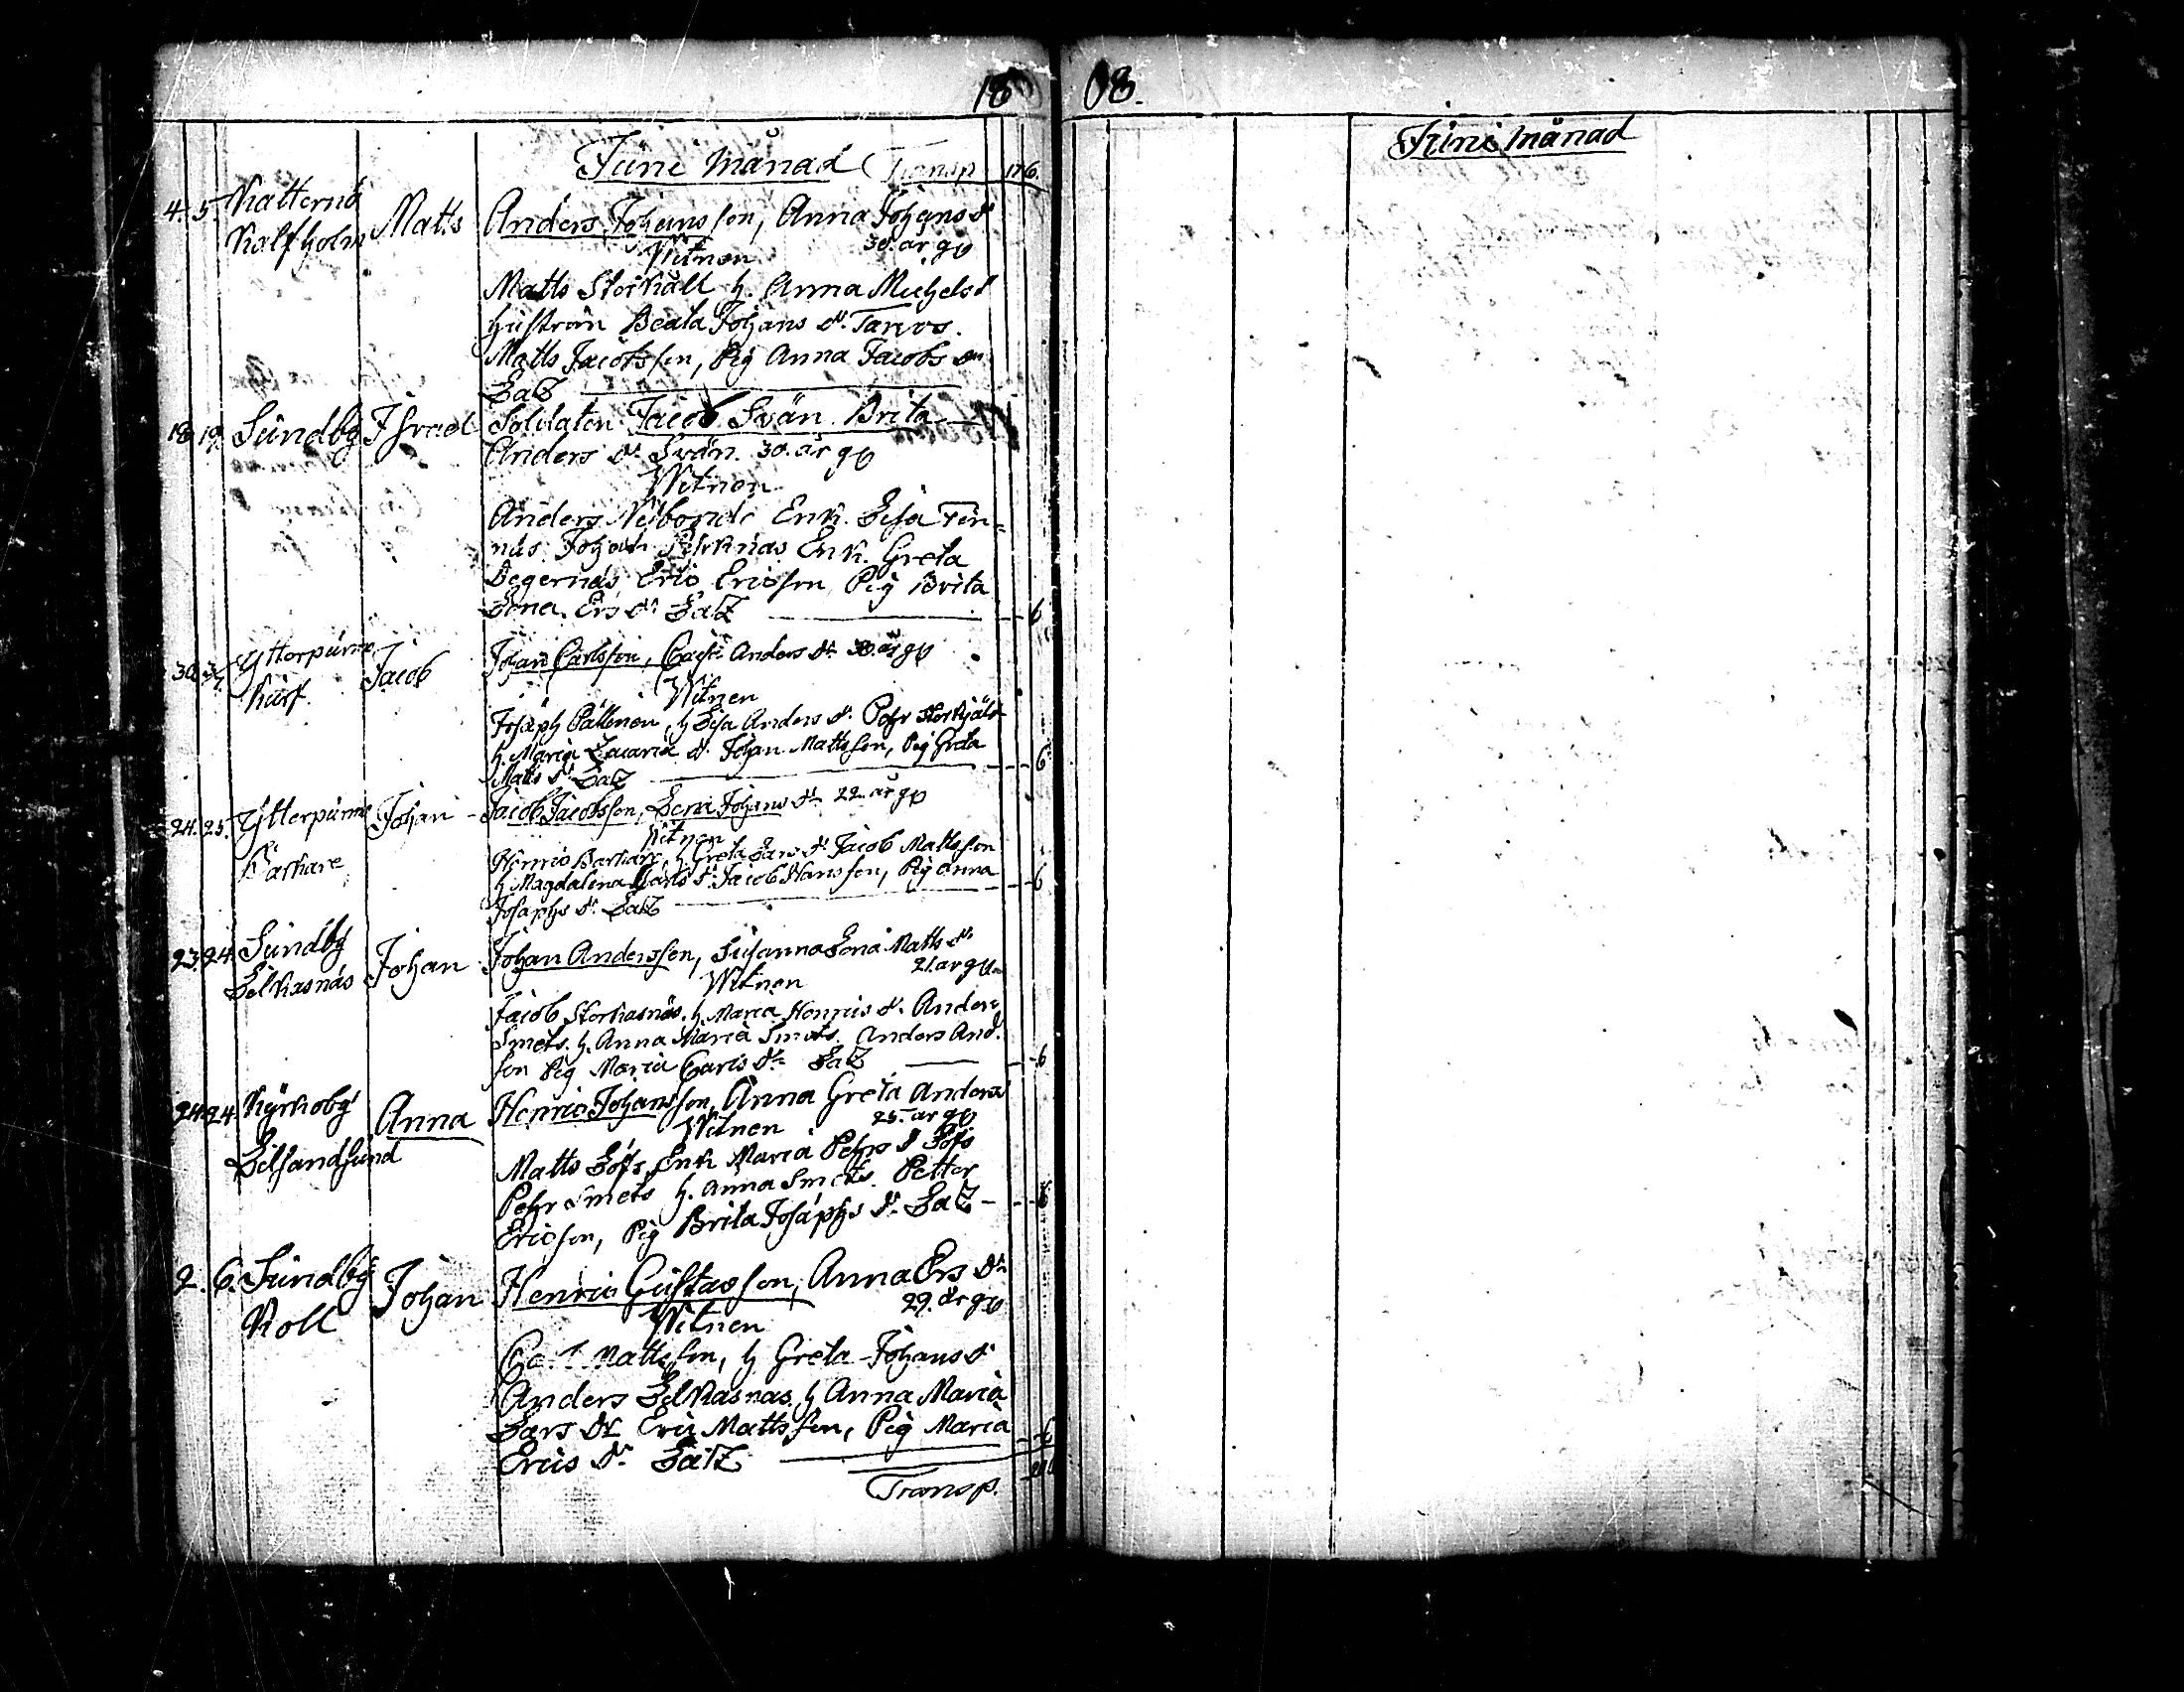 18 08.
Juni Månad Transp 176.
4. 5. Katternö Matts Anders Johansson, Anna Johans dr
Kalfholm 30. år gl
Witnen
Matts Storkåll h. Anna Michels dr
hustrun Beata Johans dr Tarvos.
Matts Jacobsson, Pig Anna Jacobs dr
LaZ
18 19. Sundby Israel Soldaten Jacob Svän Brita
Anders dr Svän. 30. år gl
Witnen
Anders Nÿbonde Enk. Lisa Fin=
näs Johan Enk. Greta
Degernäs Eric Ericson, Pig Brita
Lena Ers dr LaZ 6
30. Ytterpurmo Jacob Johan Carlsson, Caisa Anders dr 30. år gl
Witnen
Josäph Pällenen, h Lisa Anders dr Pehr
h. Maria Zacaria dr Johan Mattsson, Pig Greta 6
Matts dr LaZ
24. 25. Ytterpurmo Johan Jacob Jacobsson, Lena Johans dr 22 år gl
Witnen
Bärkare Henric Barkare, h. Greta Lars dr Jacob Mattsson
h. Magdalena Carls dr Jacob Hansson, Pig Anna 6
Josäphs dr LaZ
23. 24. Sundby Johan Johan Andersson, Susanna Lena Matts dr
Lilkasnäs 21. år gl
Witnen
Jacob Storkasnäs. h. Maria Henrics dr. Anders
Smets. h. Anna Maria Smets. Anders And.
son Pig Maria Carls dr LaZ 6
24. 24. Kÿrkobÿ Anna Henric Johansson, Anna Greta Anders
25. år gl
Witnen
Lilsandsund
Matts Löfs, Enk Maria Pehrs d Löfs
Pehr Smets h. Anna Smets. Petter
Ericson, Pig Brita Josäphs dr LaZ 6
2. 6. Sundby Johan Henric Gustafson, Anna Ers dr
Koll 29. år gl
Witnen
Carl Mattsson, h Greta Johans dr
Anders Lilkasnas. h Anna Maria
Lars dr Eric Mattsson, Pig Maria 6
Erics dr LaZ
Transp.
Juni Månad